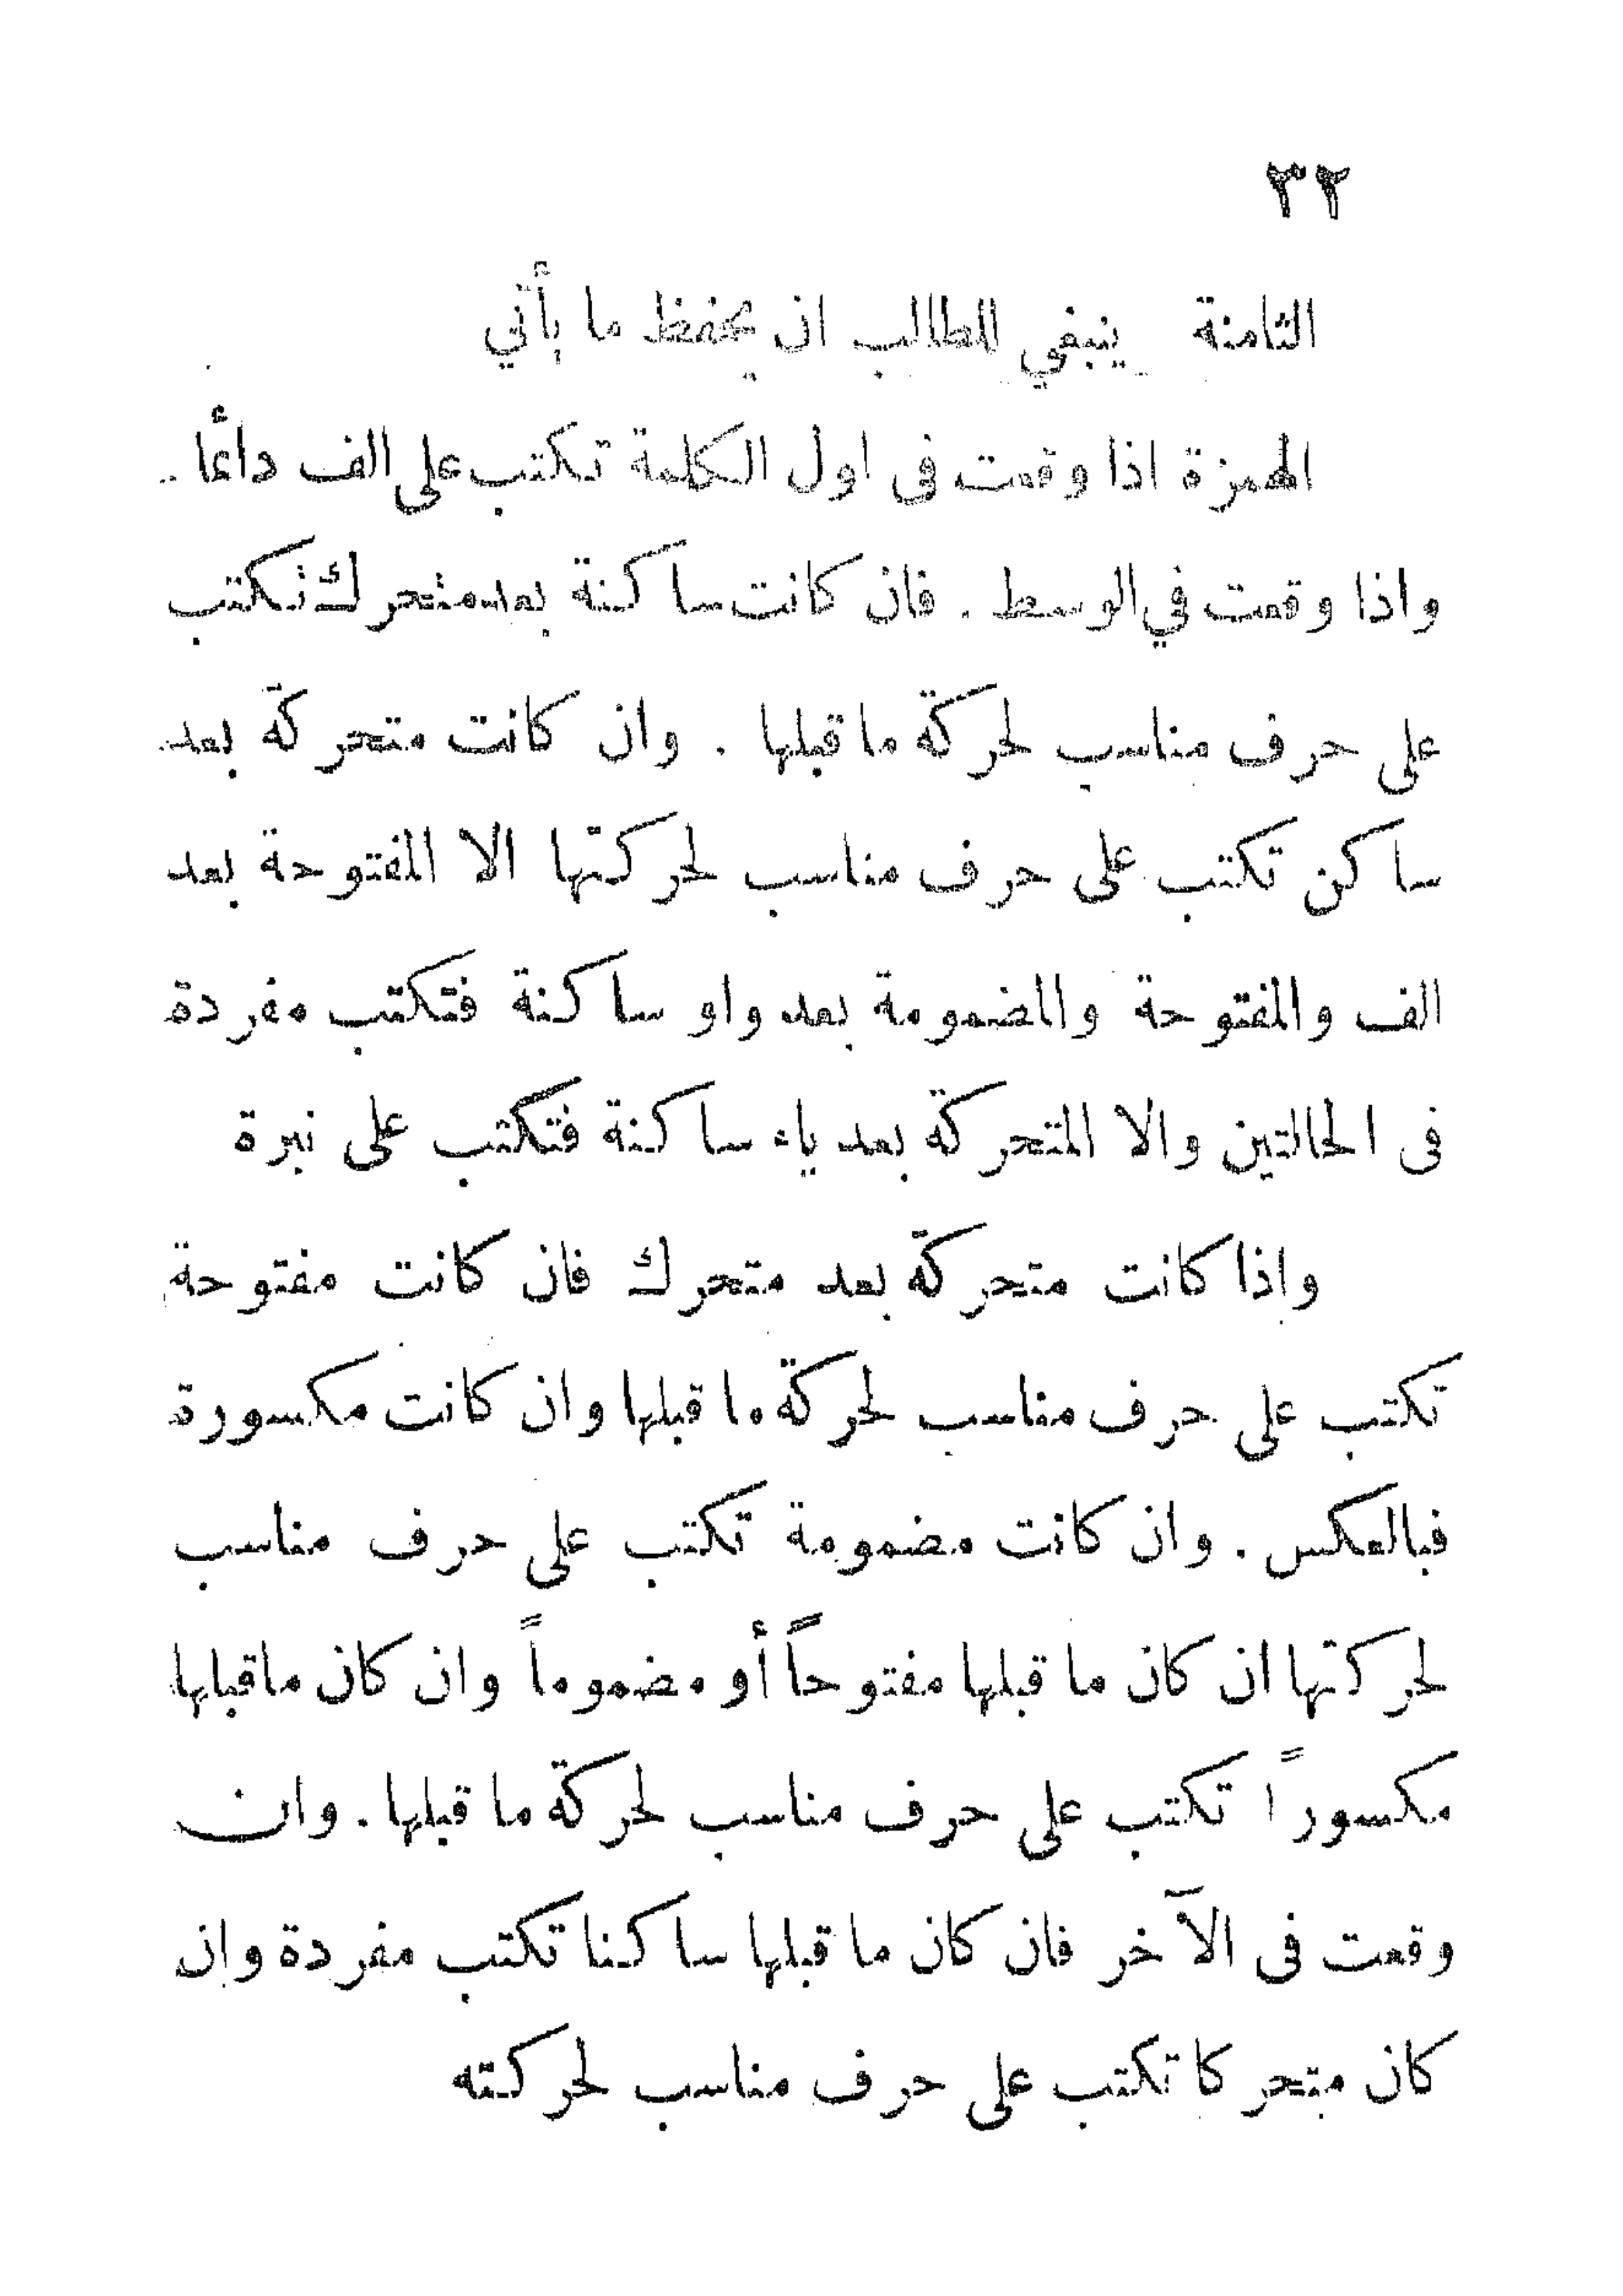 ٣٢
الثامنة ينبغي للطالب ان يحفظ ما يأتي
الهمزة اذا وقعت فى اول الكلمة تكتب على الف دائمًا .
واذا وقعت في الوسط . فان كانت ساكنة بعد متحرك تكتب
على حرف مناسب لحركة ما قبلها . وان كانت متحركة بعد
ساكن تكتب على حرف مناسب لحركتها الا المفتوحة بعد
الف والمفتوحة والمضمومة بعد واو ساكنة فتكتب مفردة
فى الحالتين والا المتحركة بعد ياء ساكنة فتكتب على نبرة
واذا كانت متحركة بعد متحرك فان كانت مفتوحة
تكتب على حرف مناسب لحركة ما قبلها وان كانت مكسورة
فبالعكس . وان كانت مضمومة تكتب على حرف مناسب
لحركتها ان كان ما قبلها مفتوحاً أو مضموماً وان كان ماقبلها
مكسوراً تكتب على حرف مناسب لحركة ما قبلها . وان
وقعت فى الآخر فان كان ما قبلها ساكنا تكتب مفردة وان
كان متحركا تكتب على حرف مناسب لحركته